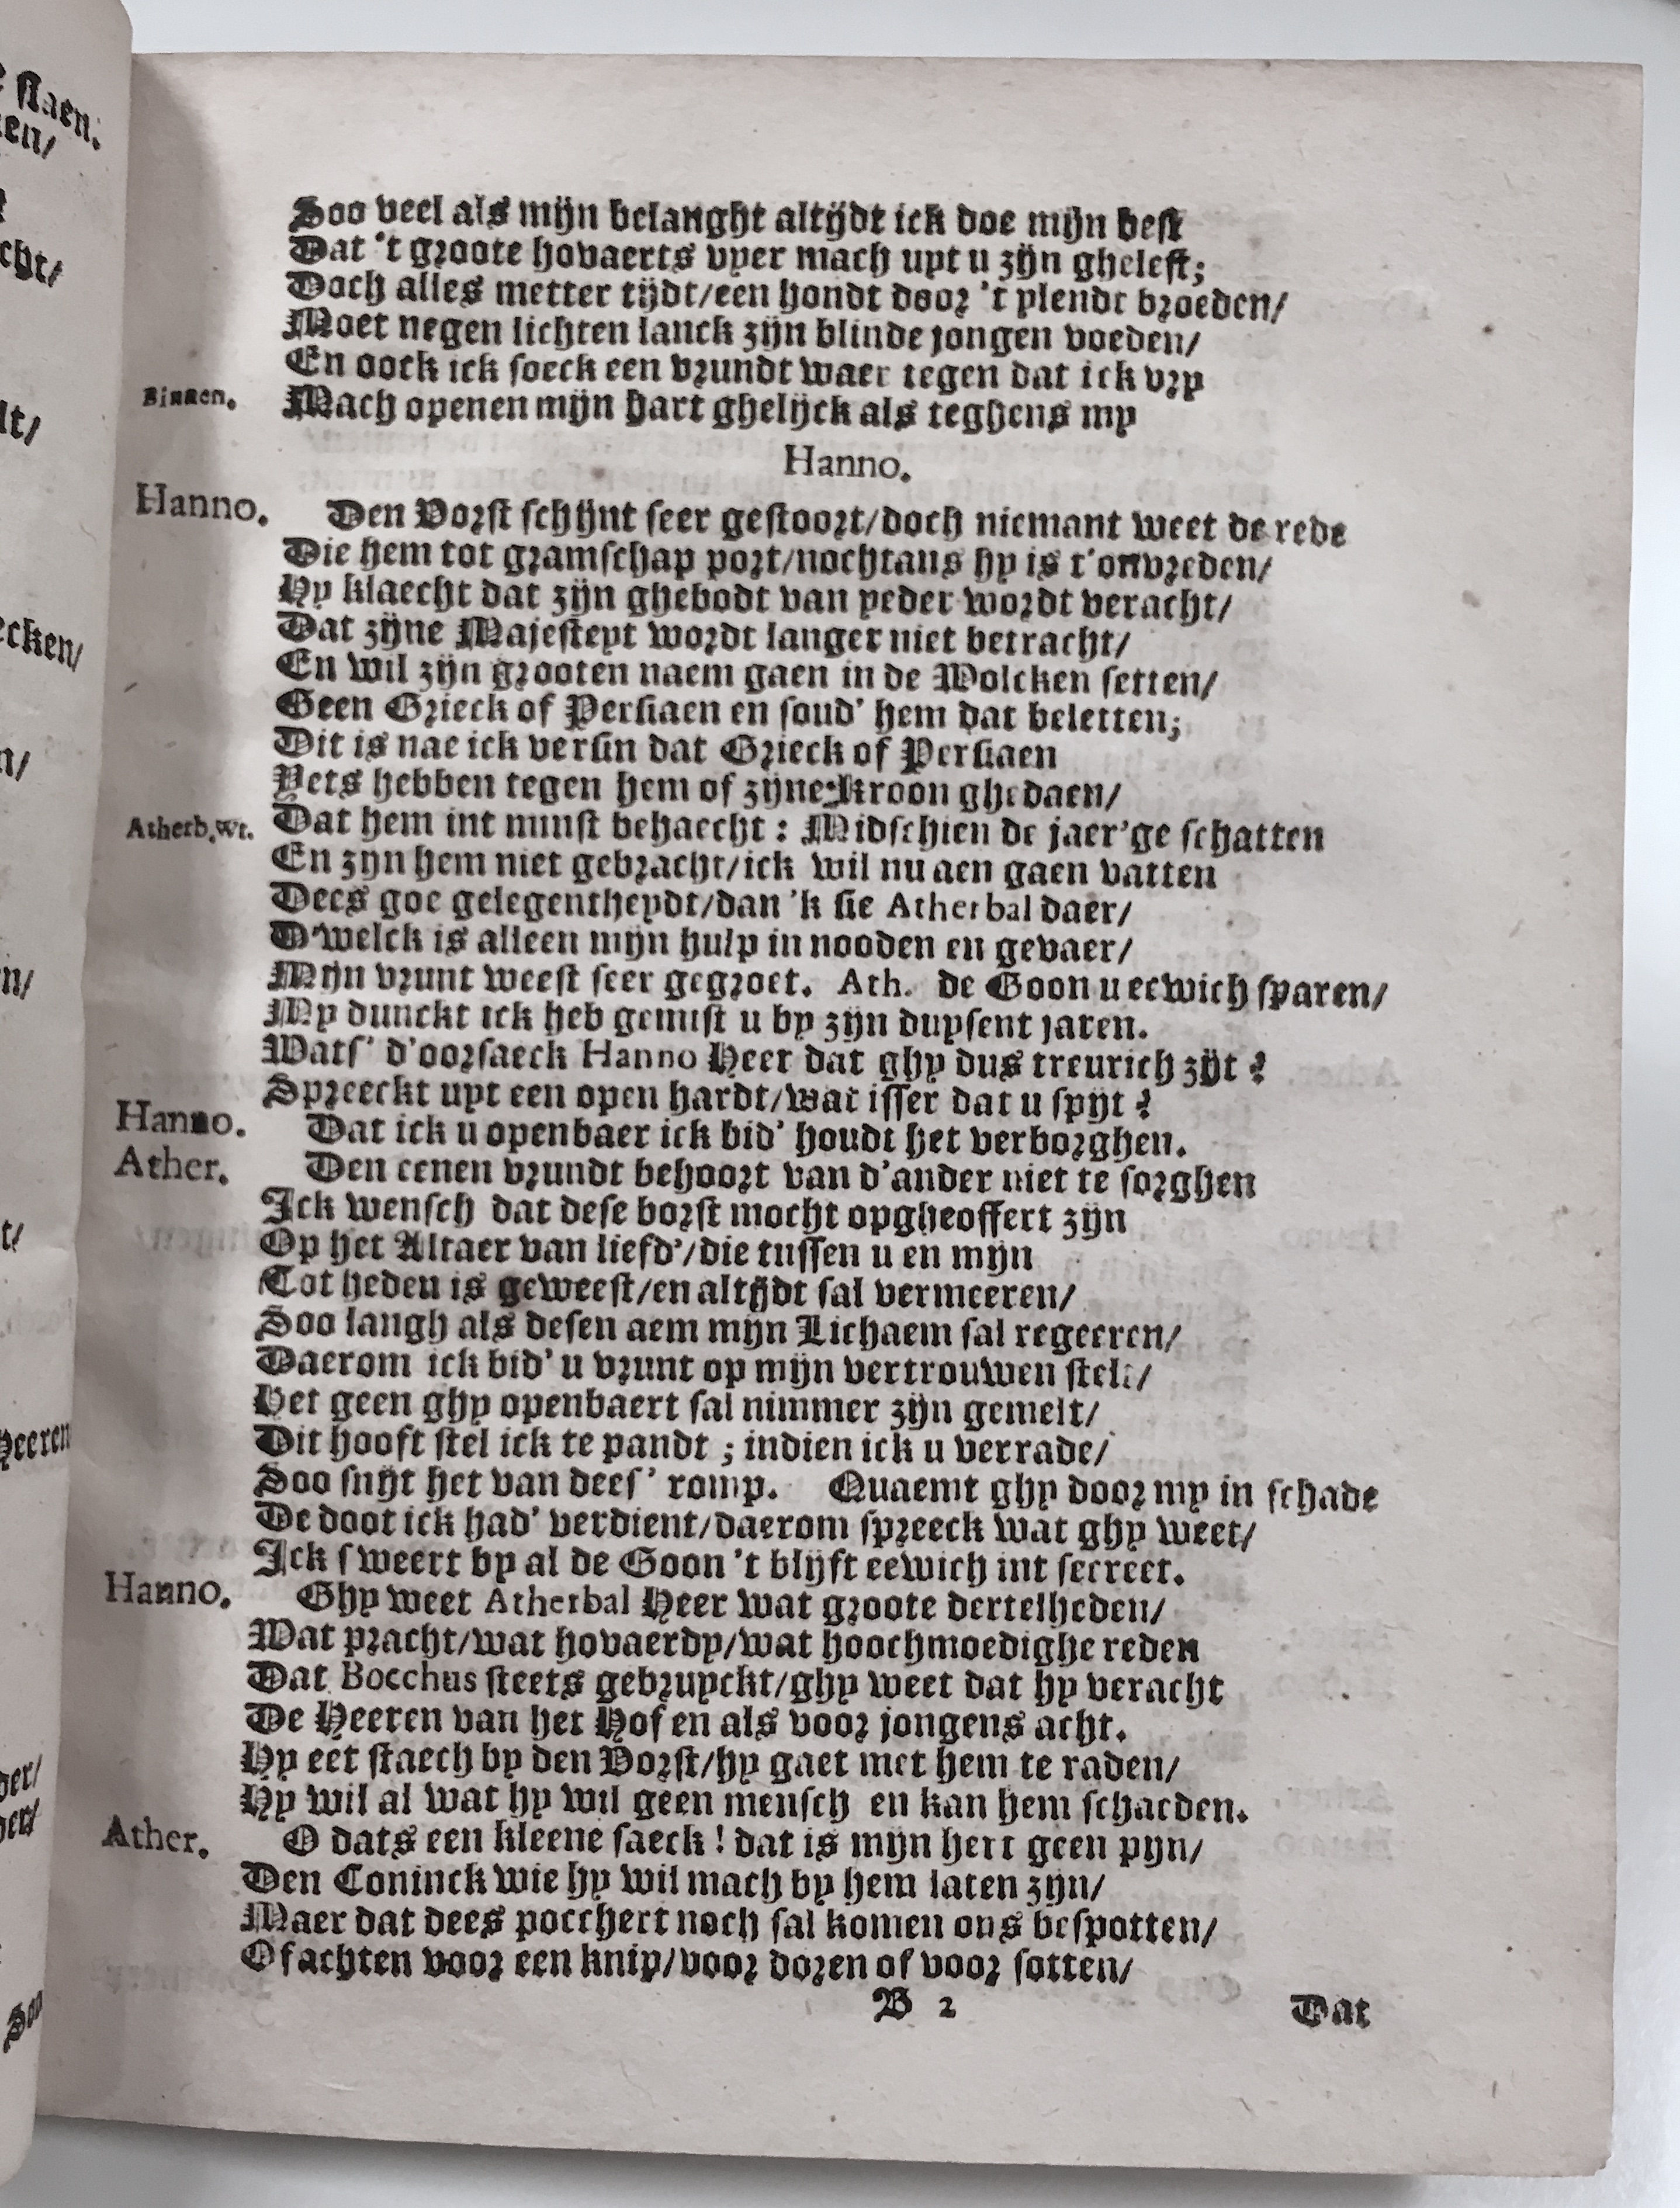 Soo veel als mijn belanght altijdt ick doe mijn best
Dat 't groote hovaerts vyer mach uyt u zijn ghelest;
Doch alles metter tijdt/een hondt door 't ylendt broeden/
Moet negen lichten lanck zijn blinde jongen voeden/
En oock ick soeck een vrundt waer tegen dat ick vry
Binnen. Mach openen mijn hart ghelijck als teghens my
Hanno.
Hanno. Den Vorst schijnt seer gestoort/doch niemant weet de rede
Die hem tot gramschap port/nochtans hy is t'onvreden/
Hy klaecht dat zijn ghebodt van yeder wordt veracht/
Dat zijne Majesteyt wordt langer niet betracht/
En wil zijn grooten naem gaen in de Wolcken setten/
Geen Grieck of Persiaen en soud' hem dat beletten;
Dit is nae ick versin dat Grieck of Persiaen
Yets hebben tegen hem of zijne Kroon ghedaen/
Atherb.wt. Dat hem int minst behaecht: Midschien de jaer'ge schatten
En zyn hem niet gebracht/ick wil nu aen gaen vatten
Dees goe gelegentheydt/dan 'k sie Atherbal daer/
D'welck is alleen mijn hulp in nooden en gevaer/
Mijn vrunt weest seer gegroet. Ath. de Goon u eewich sparen/
My dunckt ick heb gemist u by zijn duysent jaren.
Wats' d'oorsaeck Hanno Heer dat ghy dus treurich zijt?
Spreeckt uyt een open hardt/wat isser dat u spijt?
Hanno. Dat ick u openbaer ick bid' houdt het verborghen.
Ather. Den eenen vrundt behoort van d'ander niet te sorghen
Ick wensch dat dese borst mocht opgheoffert zijn
Op het Altaer van liefd'/die tussen u en mijn
Tot heden is geweest/en altijdt sal vermeeren/
Soo langh als desen aem mijn Lichaem sal regeeren/
Daerom ick bid' u vrunt op mijn vertrouwen stelt/
Het geen ghy openbaert sal nimmer zijn gemelt/
Dit hooft stel ick te pandt; indien ick u verrade/
Soo snijt het van dees' romp. Quaemt ghy door my in schade
De doot ick had' verdient/daerom spreeck wat ghy weet/
Ick sweert by al de Goon 't blijft eewich int secreet.
Hanno. Ghy weet Atherbal Heer wat groote dertelheden/
Wat pracht/wat hovaerdy/wat hoochmoedighe reden
Dat Bocchus steets gebruyckt/ghy weet dat hy veracht
De Heeren van het Hof en als voor jongens acht.
Hy eet staech by den Vorst/hy gaet met hem te raden/
Hy wil al wat hy wil geen mensch en kan hem schaeden.
Ather. O dats een kleene saeck! dat is mijn hert geen pyn/
Den Coninck wie hy wil mach by hem laten zijn/
Maer dat dees pocchert noch sal komen ons bespotten/
Of achten voor een knip/voor doren of voor sotten/
B 2 Dat